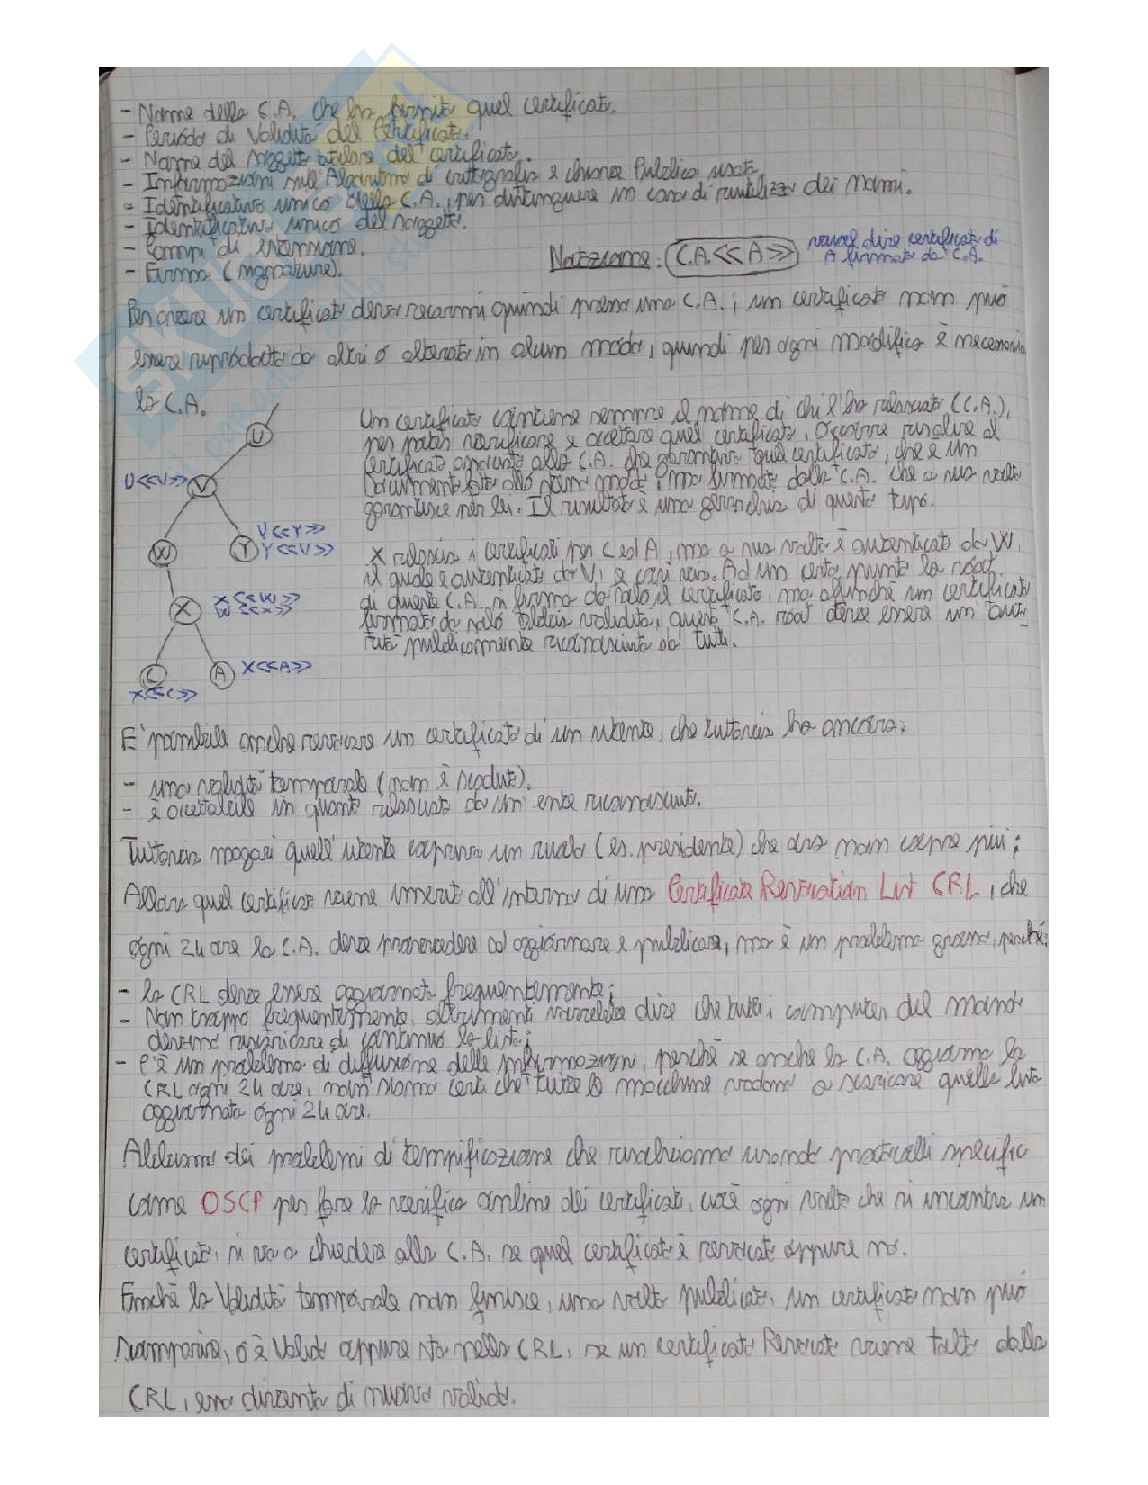 - Nome della C.A. che ha fornito quel certificato.
- Periodo di Validità del Certificato.
- Nome del soggetto titolare del certificato.
- Informazioni sull'Algoritmo di crittografia e chiave Pubblica usata
- Identificativo unico della C.A., per distinguere in caso di riutilizzo dei nomi.
- Identificativo unico del soggetto.
- Campi di estensione.
- Firma (signature).
Notazione: C.A.<<A>> vuol dire certificato di
A firmato da C.A.
Per creare un certificato devo recarmi quindi presso una C.A.; un certificato non può
essere riprodotto da altri o alterato in alcun modo, quindi per ogni modifica è necessaria
la C.A.
Un certificato contiene sempre il nome di chi l'ha rilasciato (C.A.),
per poter verificare e accettare quel certificato, occorre risalire al
certificato associato alla C.A. che garantiva quel certificato, che è un
documento fatto allo stesso modo, ma firmato dalla C.A. che a sua volta
garantisce per lei. Il risultato è una gerarchia di questo tipo.
U
U<<V>> V
V<<Y>>
W Y Y<<V>>
X rilascia i certificati per C ed A, ma a sua volta è autenticato da W,
il quale è autenticato da V, e così via. Ad un certo punto la root
di queste C.A. si firma da sola il certificato, ma affinchè un certificato
firmato da solo abbia validità, questa C.A. root deve essere un auto-
rità pubblicamente riconosciuta da tutti.
X<<W>>
X W<<X>>
C A X<<A>>
X<<C>>
E' possibile anche revocare un certificato di un utente, che tuttavia ha ancora:
- una validità temporale (non è scaduto).
- è accettabile in quanto rilasciato da un ente riconosciuto.
Tuttavia magari quell'utente copriva un ruolo (es. presidente) che ora non copre più;
Allora quel certificato viene inserito all'interno di una Certificate Revocation List CRL, che
ogni 24 ore la C.A. deve provvedere ad aggiornare e pubblicare, ma è un problema grosso, perchè:
- la CRL deve essere aggiornata frequentemente;
- Non troppo frequentemente, altrimenti vorrebbe dire che tutti i computer del mondo
devono riscaricare di continuo la lista;
- C'è un problema di diffusione delle informazioni, perchè se anche la C.A. aggiorna la
CRL ogni 24 ore, non siamo certi che tutte le macchine vadano a scaricare quella lista
aggiornata ogni 24 ore.
Abbiamo dei problemi di tempificazione che risolviamo usando protocolli specifici
come OSCP per fare la verifica online dei certificati, cioè ogni volta che si incontra un
certificato, si va a chiedere alla C.A. se quel certificato è revocato oppure no.
Finchè la Validità temporale non finisce, una volta pubblicato, un certificato non può
scomparire, o è Valido oppure sta nella CRL, se un certificato Revocato viene tolto dalla
CRL, esso diventa di nuovo valido.